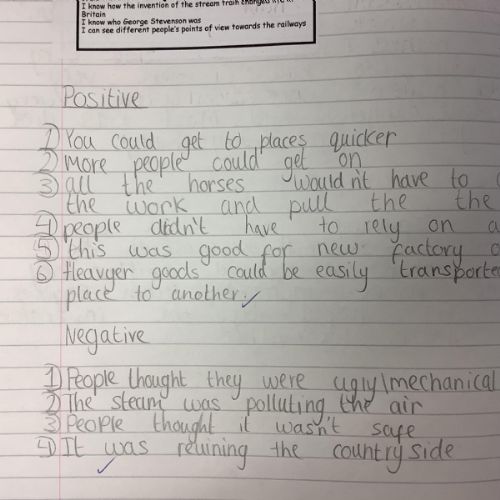 I know how the invention of the stream train changed
Britain
I know who George Stevenson was
I can see different people's points of view towards the railways
Positive
1) You could get to places quicker
2) More people could get on
3) all the horses wouldn't have to
the work and pull the the
4) people didn't have to rely on a
5) this was good for new factory
6) Heavyer goods could be easily transporte
place to another.
Negative
1) People thought they were ugly\mechanical
2) The steam was polluting the air
3) People thought it wasn't safe
4) It was reuining the country side